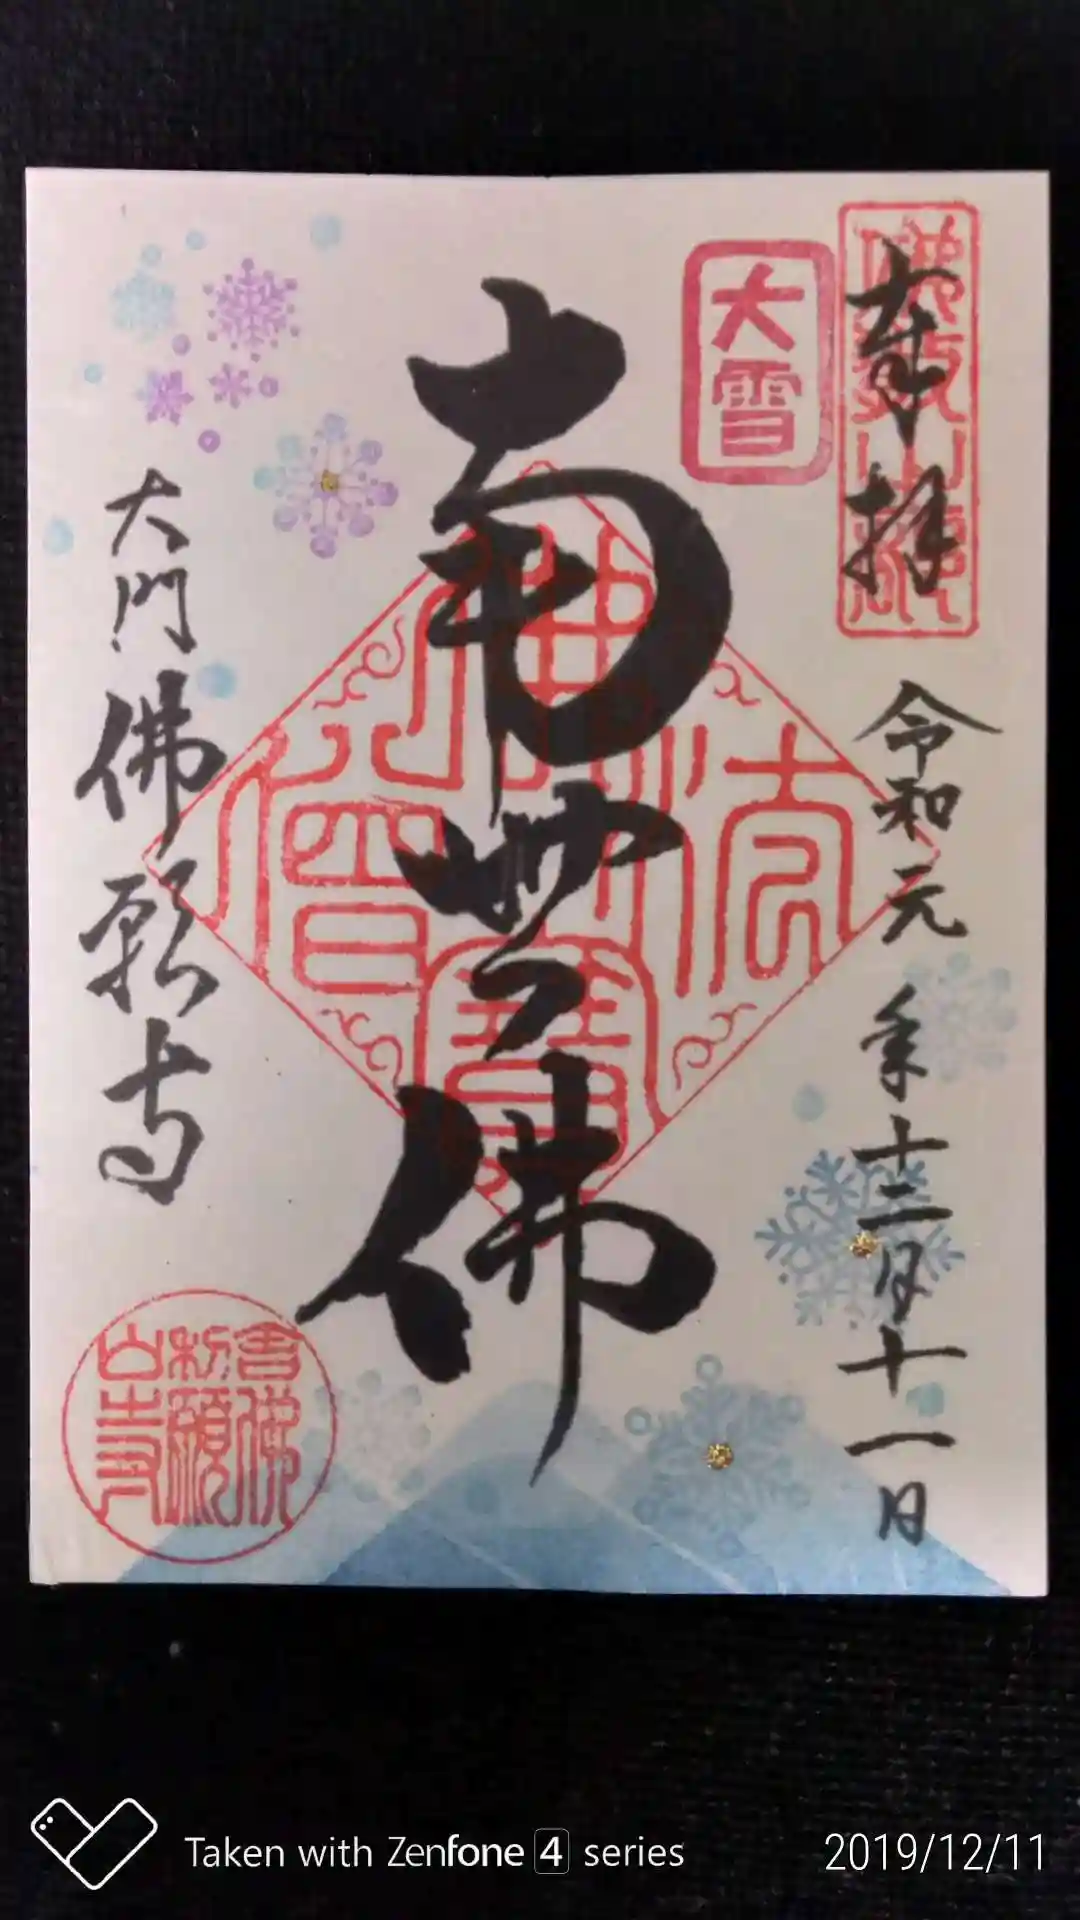 奉拝
令和元年十二月十一日
大雪
南無佛
佛法僧寶
大門佛願寺
Taken with Zenfone 4 series
2019/12/11